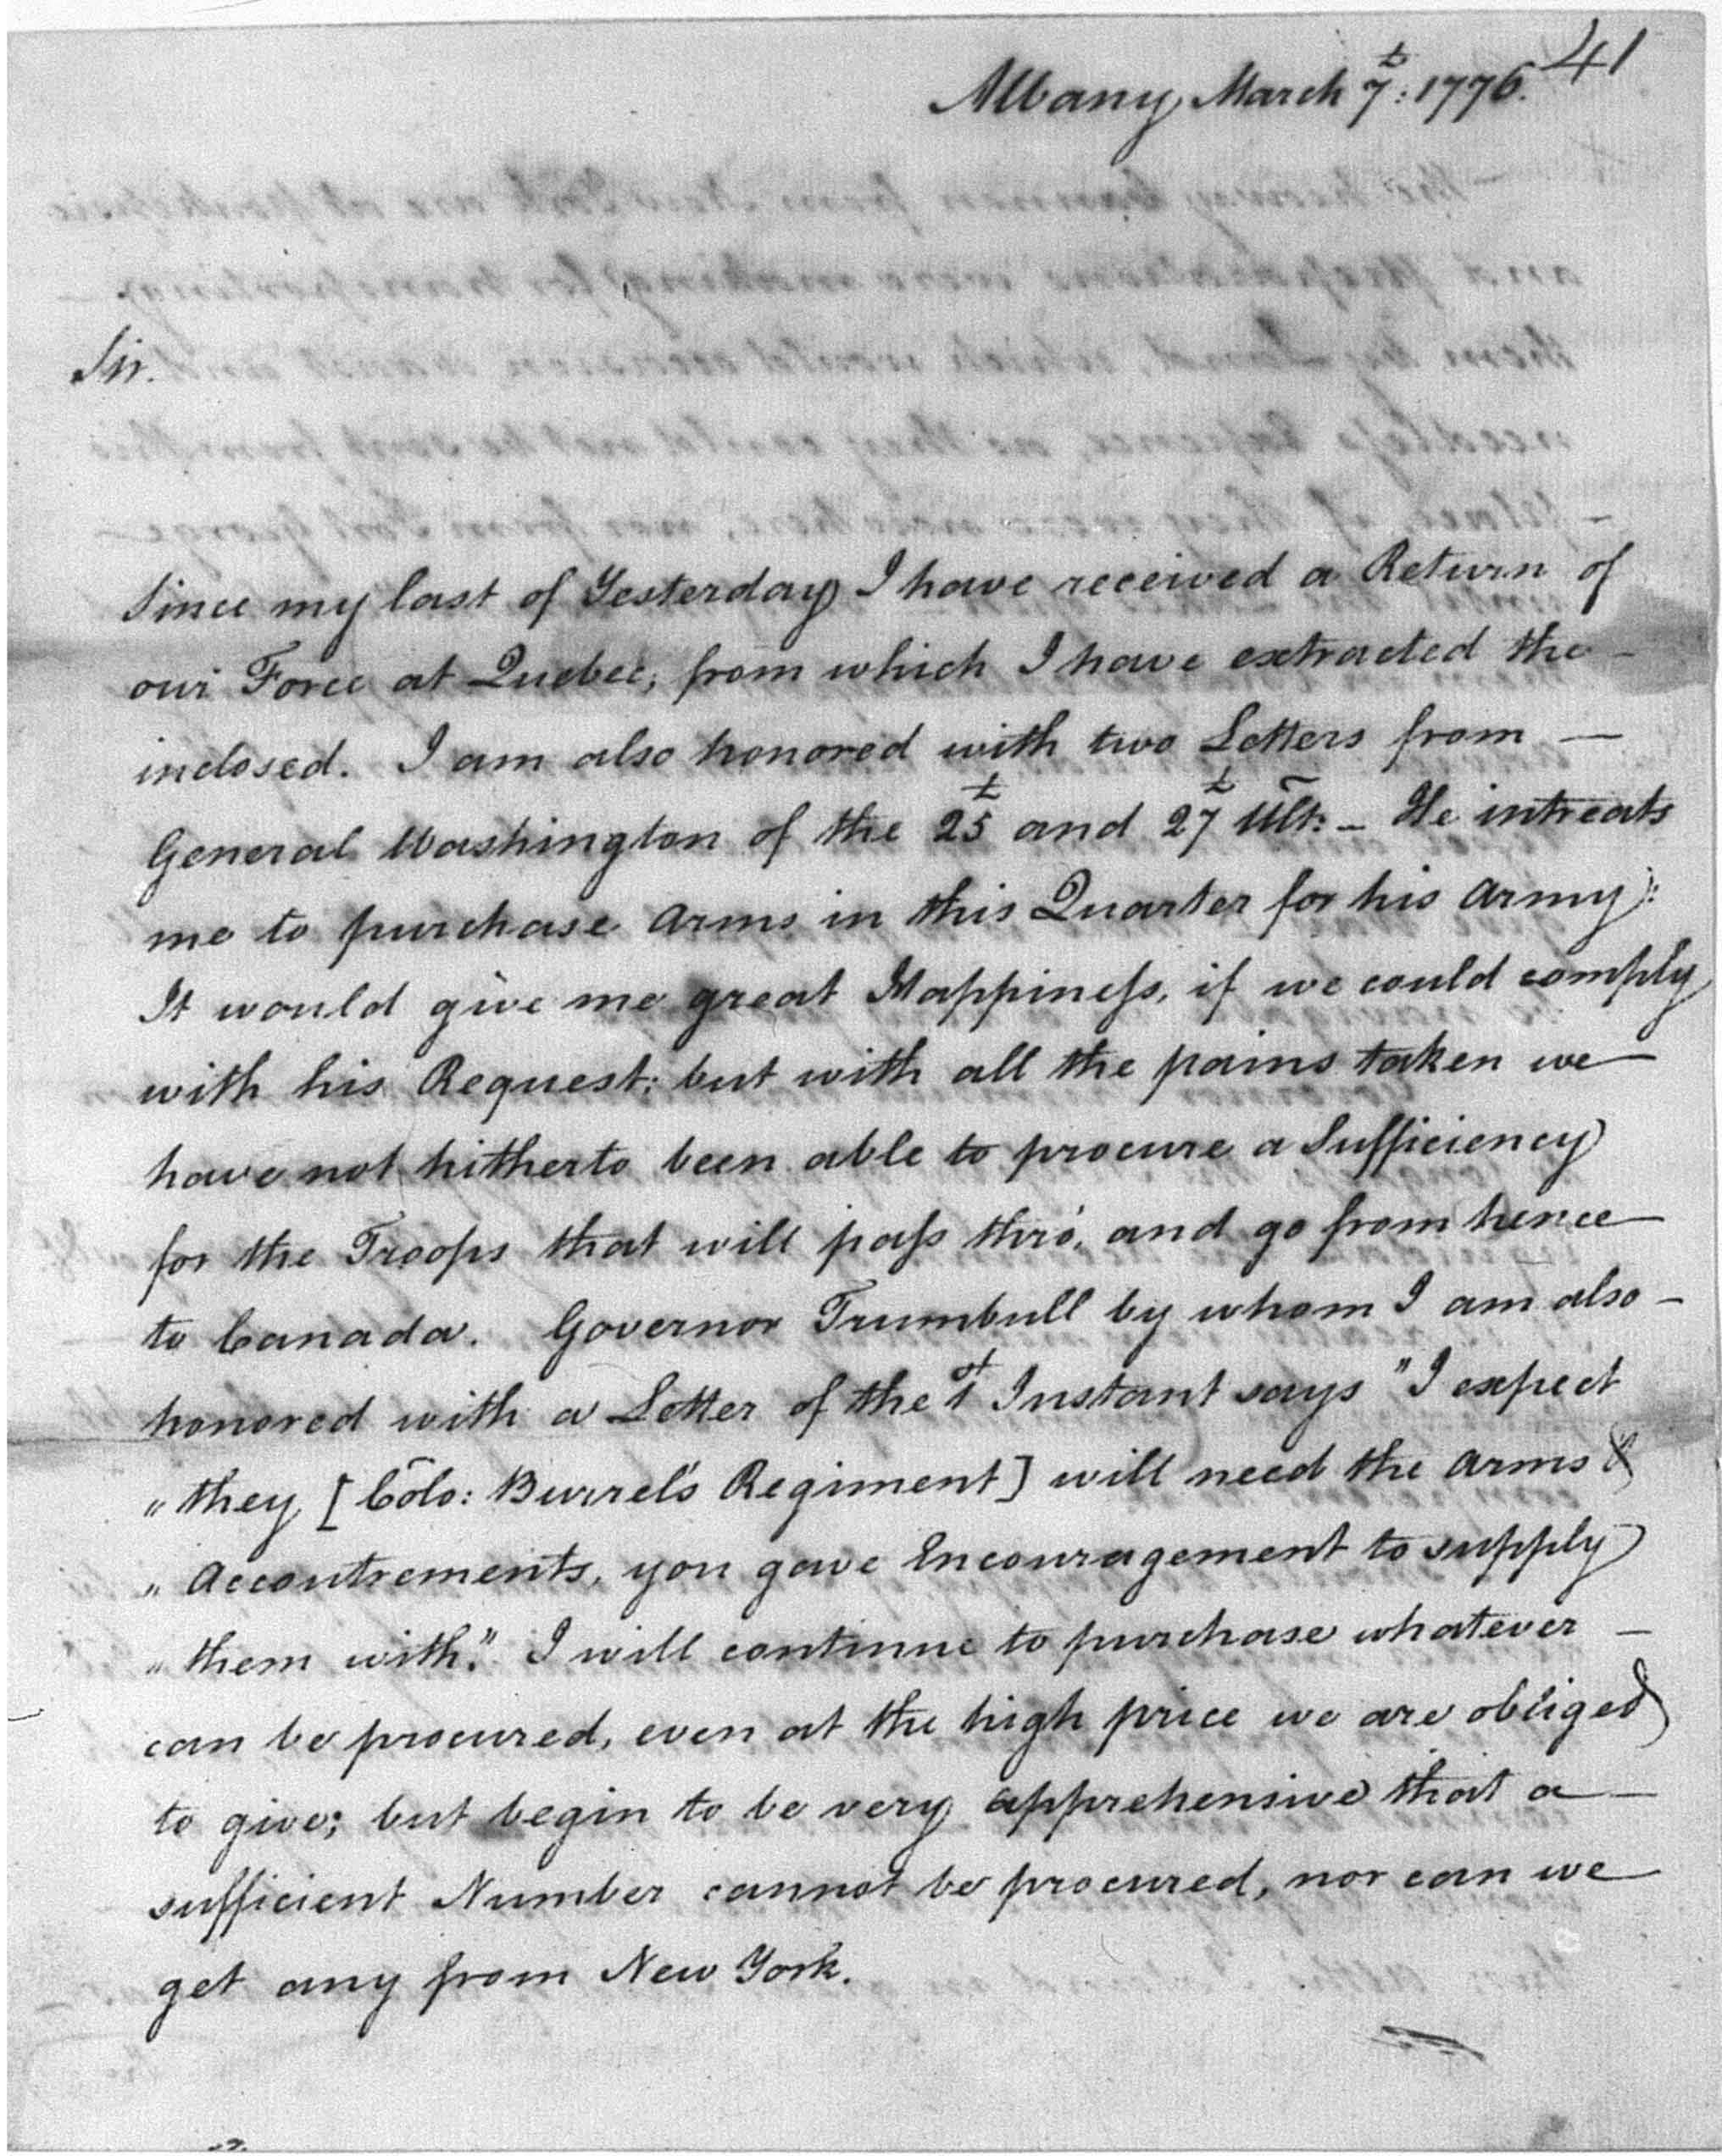 41
Albany, March 7t: 1776.
Sir.
Since my last of Yesterday I have received a Return of
our Force at Quebec, from which I have extracted the –
inclosed. I am also honored with two Letters from —
General Washington of the 25t and 27t Ult: – He intreats
me to purchase Arms in this Quarter for his Army:
It would give me great Happiness, if we could comply
with his Request; but with all the pains taken we
have not hitherto been able to procure a Sufficiency
for the Troops that will pass thro', and go from hence
to Canada. Governor Trumbull by whom I am also –
honored with a Letter of the 1st Instant says "I expect
"they [Colo: Burrel's Regiment] will need the Arms &
"Accoutrements, you gave Encouragement to supply
"them with." I will continue to purchase whatever –
can be procured, even at the high price we are obliged
to give; but begin to be very apprehensive that a —
sufficient Number cannot be procured, nor can we
get any from New York.